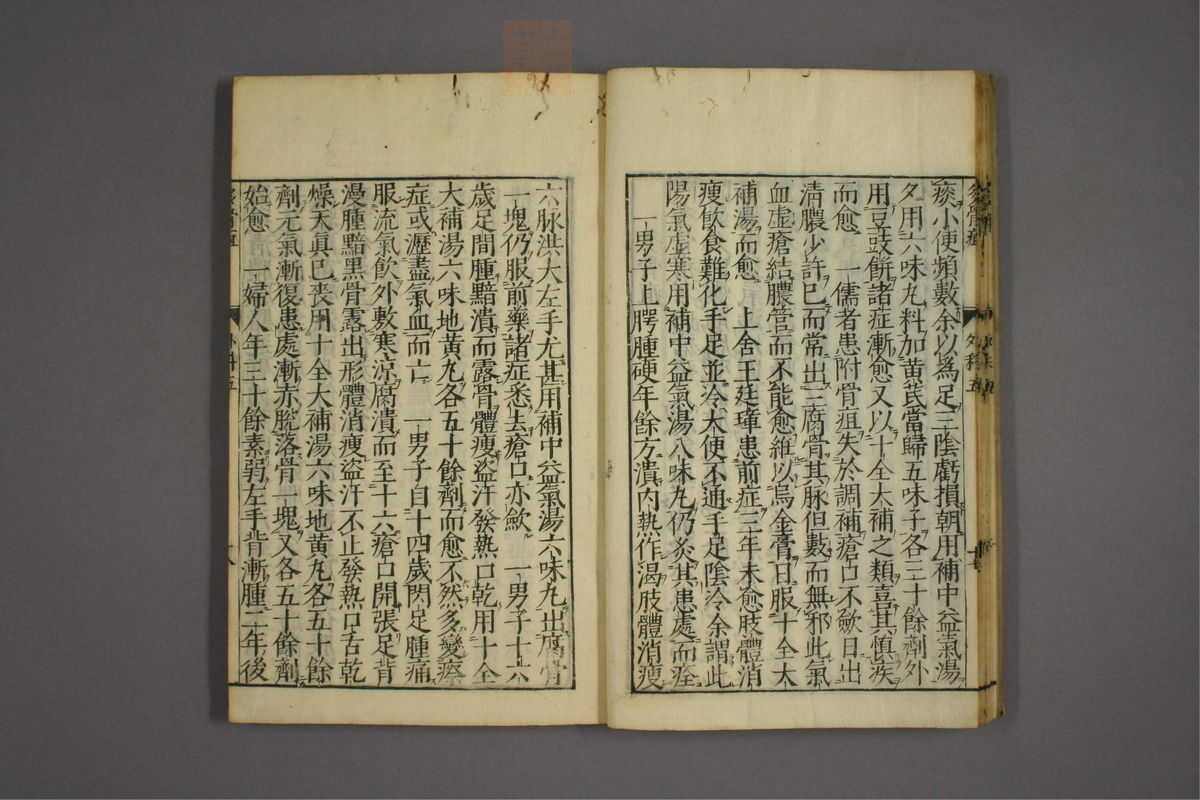 痰小便頻數余以爲足三陰虧損朝用補中益氣湯
夕用六味丸料加黄芪當歸五味子各三十餘劑外
用豆豉餅諸症漸愈又以十全大補之類喜其愼疾
而愈　一儒者患附骨疽失於調補瘡口不斂日出
清膿少許已而常出三腐骨其脉但數而無邪此氣
血虚瘡結膿管而不能愈維以烏金膏日服十全大
補湯而愈　上舍王廷璋患前症三年未愈肢體消
瘦飮食難化手足並冷大便不通手足陰冷余謂此
陽氣虚寒用補中益氣湯八味丸仍灸其患處而痊
一男子上腭腫硬年餘方潰内熱作渴肢體消瘦
外科　五
六脉洪大左手尤甚用補中益氣湯六味丸出腐骨
一塊仍服前藥諸症悉去瘡口亦斂　一男子十六
歲足間腫黯潰而露骨體瘦盗汗發熱口乾用十全
大補湯六味地黄丸各五十餘劑而愈不然多變瘵
症或瀝盡氣血而亡　一男子自十四歲閃足腫痛
服流氣飮外敷寒凉腐潰而至十六瘡口開張足背
漫腫黯黑骨露出形體消瘦盗汗不止發熱口舌乾
燥天眞已喪用十全大補湯六味地黄丸各五十餘
劑元氣漸復患處漸赤脱落骨一塊又各五十餘劑
始愈　一婦人年三十餘素弱左手背漸腫二年後
外科五